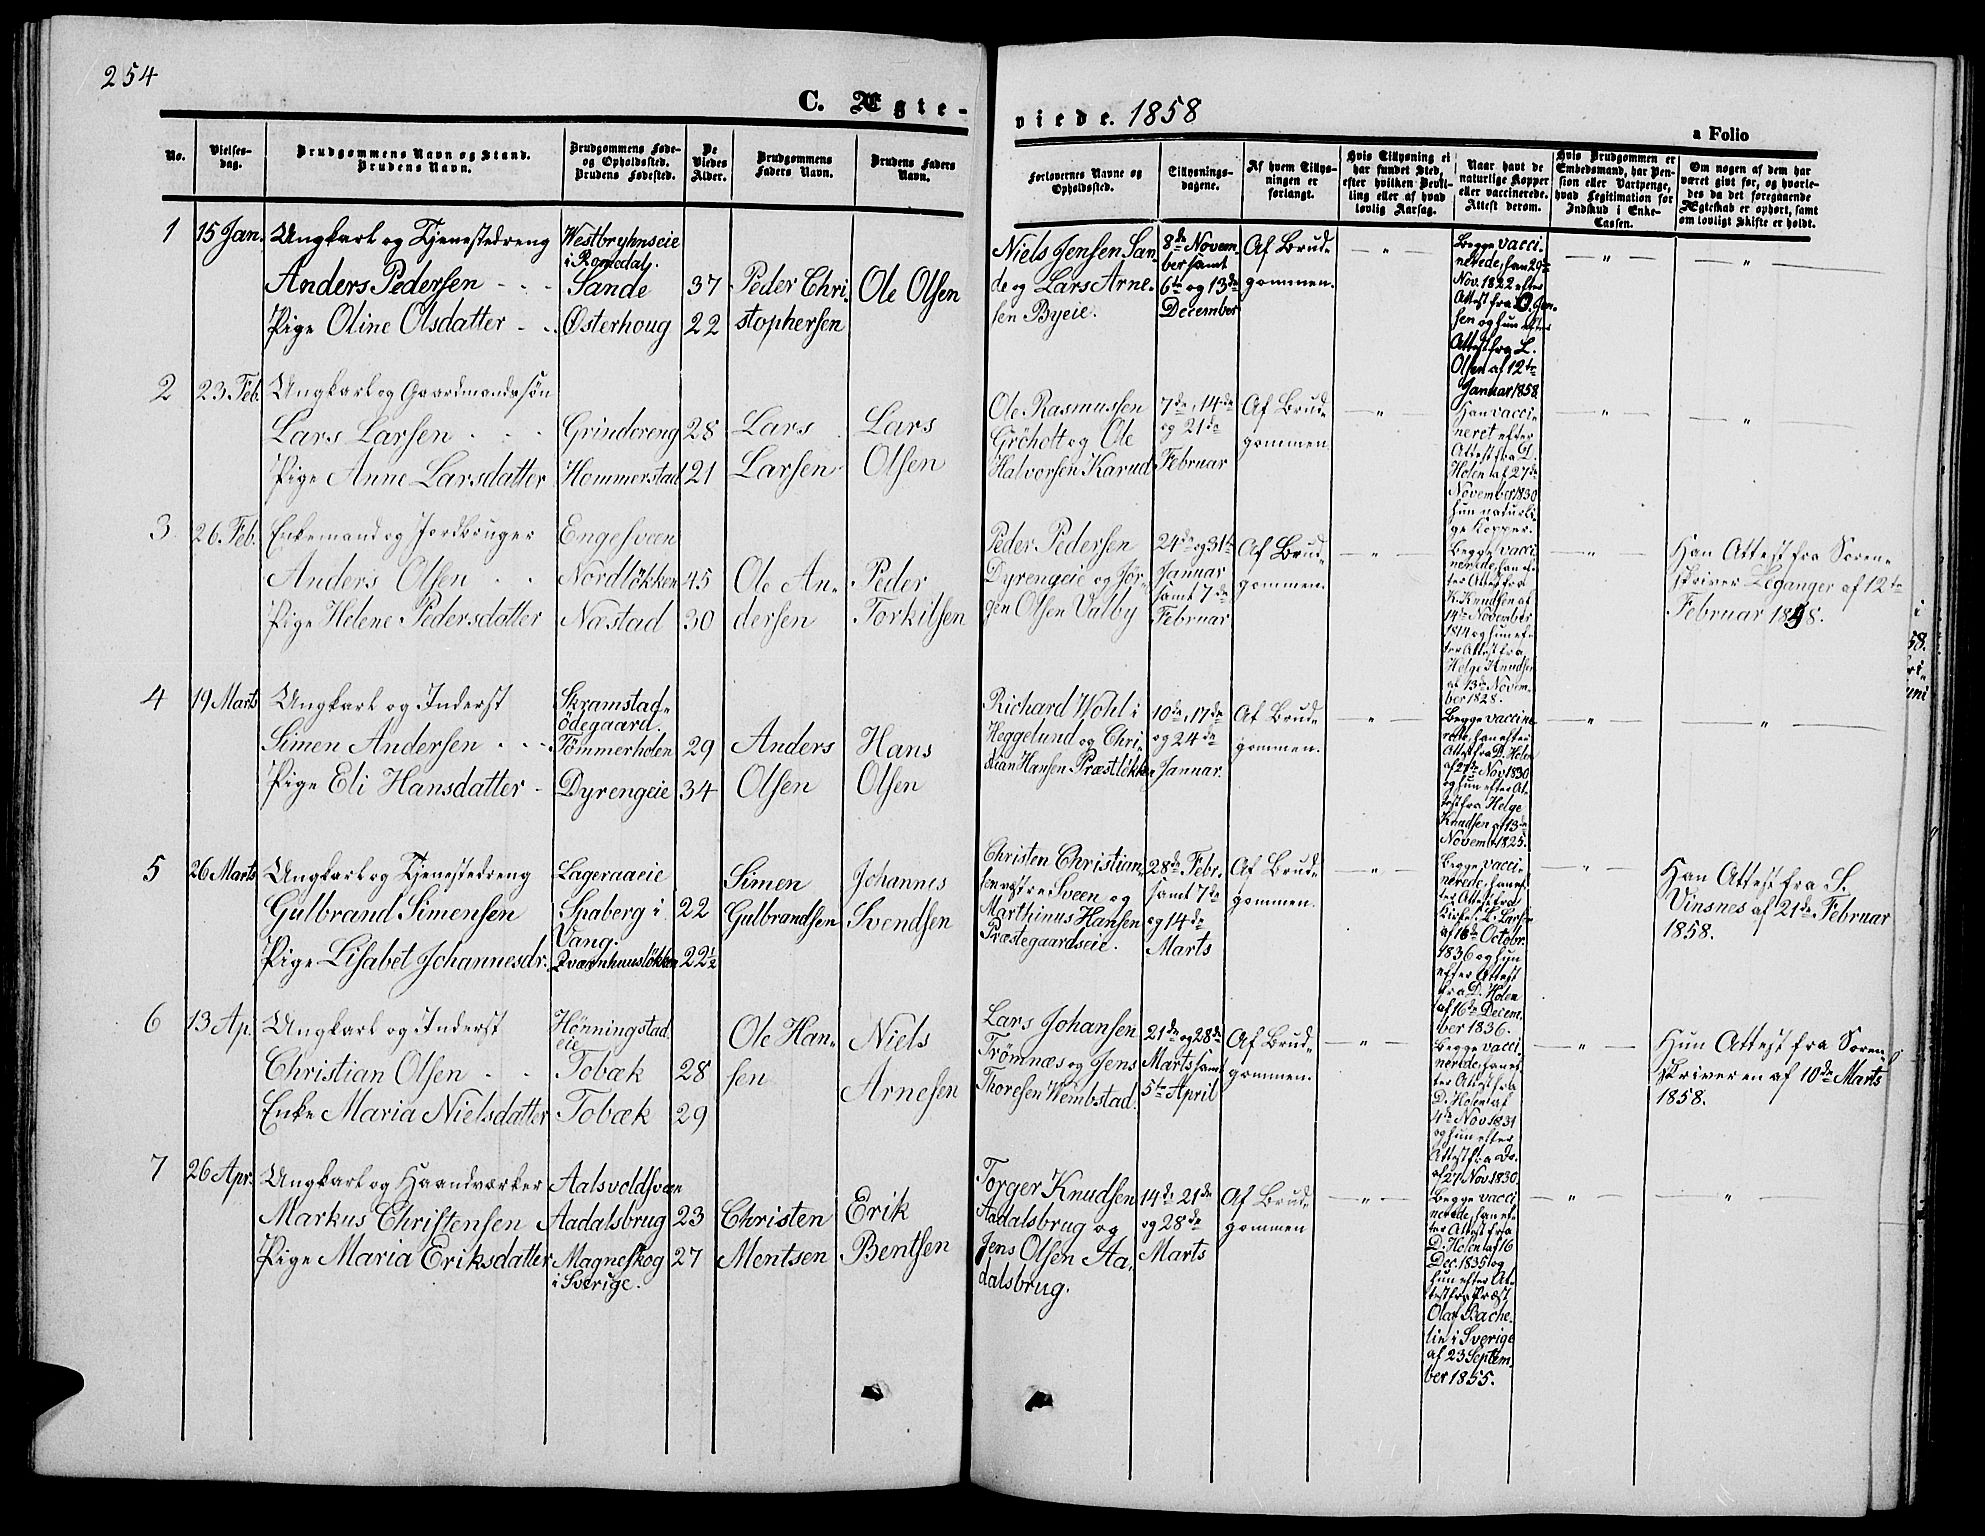 254
C. Ægte-
viede. 1858
a Folio
No.
Vielses-
dag.
Brudgommens Navn og Stand.
Brudens Navn.
Brudgommens Føde-
og Opholdssted.
Brudens Fødested.
De
Viedes
Alder.
Brudgommens
Faders Navn.
Brudens Faders
Navn.
Forlovernes Navne og
Opholdssted.
Tillysnings-
dagene.
Af hvem Tillys-
ningen er
forlangt.
Hvis Tillysning ei
har fundet Sted,
efter hvilken Bevil-
ling eller af hvad
lovlig Aarsag.
Naar havt de
naturlige Kopper
eller vaccinerede.
Attest derom.
Hvis Brudgommen er
Embedsmand, har Pen-
sion eller Vartpenge,
hvad Legitimation for
Indskud i Enke-
Cassen.
Om nogen af dem har
været givt før, og hvorle-
des da det foregaaende
Ægteskab er ophørt, samt
om lovligt Skifte er holdt.
1
15 Jan.
Ungkarl og Tjenestedreng
Anders Pedersen
Pige Oline Olsdatter
Westbryhnseie
i Romedal.
Sande
Østerhoug
37
22
Peder Chri-
stophersen
Ole Olsen
Niels Jensen San-
de og Lars Arne-
sen Byeie.
8de Novem-
ber samt
6te og 13de
December
Af Brud-
gommen.
Begge vacci-
nerede, han 29de
Nov. 1822 efter
Attest fra O. Jen-
sen og hun efter
Attest fra L.
Olsen af 12te
Januar 1858.
2
23 Feb.
Ungkarl og Gaardmandssøn
Lars Larsen
Pige Anne Larsdatter
Grindereng
Hommerstad
28
21
Lars
Larsen
Lars
Olsen
Ole Rasmussen
Gröholt og Ole
Halvorsen Karud
7de, 14de
og 21de
Februar
Af Brud-
gommen.
Han vacci-
neret efter
Attest fra D.
Holen af 27de
November 1830
hun naturli-
ge Kopper.
3
26 Feb.
Enkemand og Jordbruger
Anders Olsen
Pige Helene Pedersdatter
Engesveen
Nordløkken
Næstad
45
30
Ole An-
dersen
Peder
Torkilsen
Peder Pedersen
Dyrengeie og Jør-
gen Olsen Valby
24de og 31te
Januar
samt 7de
Februar
Af Brud-
gommen.
Begge vacci-
nerede, han ef-
ter Attest fra
K. Knudsen af
14de November
1814 og hun ef-
ter Attest fra
Helge Knudsen
af 13de Novem-
ber 1828.
Han Attest fra Soren-
skriver Leganger af 12te
Februar 1858.
4
19 Marts
Ungkarl og Inderst
Simen Andersen
Pige Eli Hansdatter
Skramstad-
ödegaard.
Tömmerholen
Dyrengeie
29
34
Anders
Olsen
Hans
Olsen
Richard Wohl i
Heggelund og Chri-
stian Hansen Præstløkke
10de, 17de
og 24de
Januar.
Af Brud-
gommen.
Begge vaccine-
rede, han efter
Attest fra D. Holen
af 27de Nov 1830
og hun efter At-
test fra Helge
Knudsen af 13de
Novemb. 1825.
5
26 Marts
Ungkarl og Tjenestedreng
Gulbrand Simensen
Pige Lisabet Johannesdr.
Lageraaeie
Spaberg i
Vang.
Qværnhuusløkken
22
22½
Simen
Gulbrandsen
Johannes
Svendsen
Christen Christian-
sen vestre Sveen og
Marthinus Hansen
Præstegaardseie.
28de Febr.
samt 7de
og 14de
Marts
Af Brud-
gommen.
Begge vacci-
nerede, han ef-
ter Attest fra
Kirkes. L. Larsen
af 18de Octobr.
1836 og hun
efter Attest
fra D. Holen
af 16de Decem-
ber 1836.
Han Attest fra S.
Vinsnes af 21de Februar
1858.
6
13 Ap.
Ungkarl og Inderst
Christian Olsen
Enke Maria Nielsdatter
Hönningstad
eie
Tobæk
Tobæk
28
29
Ole Han-
sen
Niels
Arnesen
Lars Johansen
Trömnæs og Jens
Thoresen Wembstad.
21de og 28de
Marts samt
5te April
Af Brud-
gommen.
Begge vacci-
nerede, han ef-
ter Attest fra
D. Holen af
4de Nov 1831
og hun efter
Attest fra Do.
af 27 Nov 1830.
Hun Attest fra Soren-
skriveren af 10de Marts
1858.
7
26 Apr.
Ungkarl og Haandværker
Markus Christensen
Pige Maria Eriksdatter
Aalsvoldsveen
Aadalsbrug
Magneskog
i Sverige.
23
27
Christen
Mentsen
Erik
Bentsen
Torger Knudsen
Aadalsbrug og
Jens Olsen Aa-
dalsbrug.
14de 21de
og 28de
Marts
Af Brud-
gommen
Begge vacci-
nerede, han ef-
ter Attest fra
D. Holen af 16
Dec. 1835 og
hun efter At-
test fra Præst
Olaf Bache-
lin i Sverige
af 23 Septem-
ber 1855.